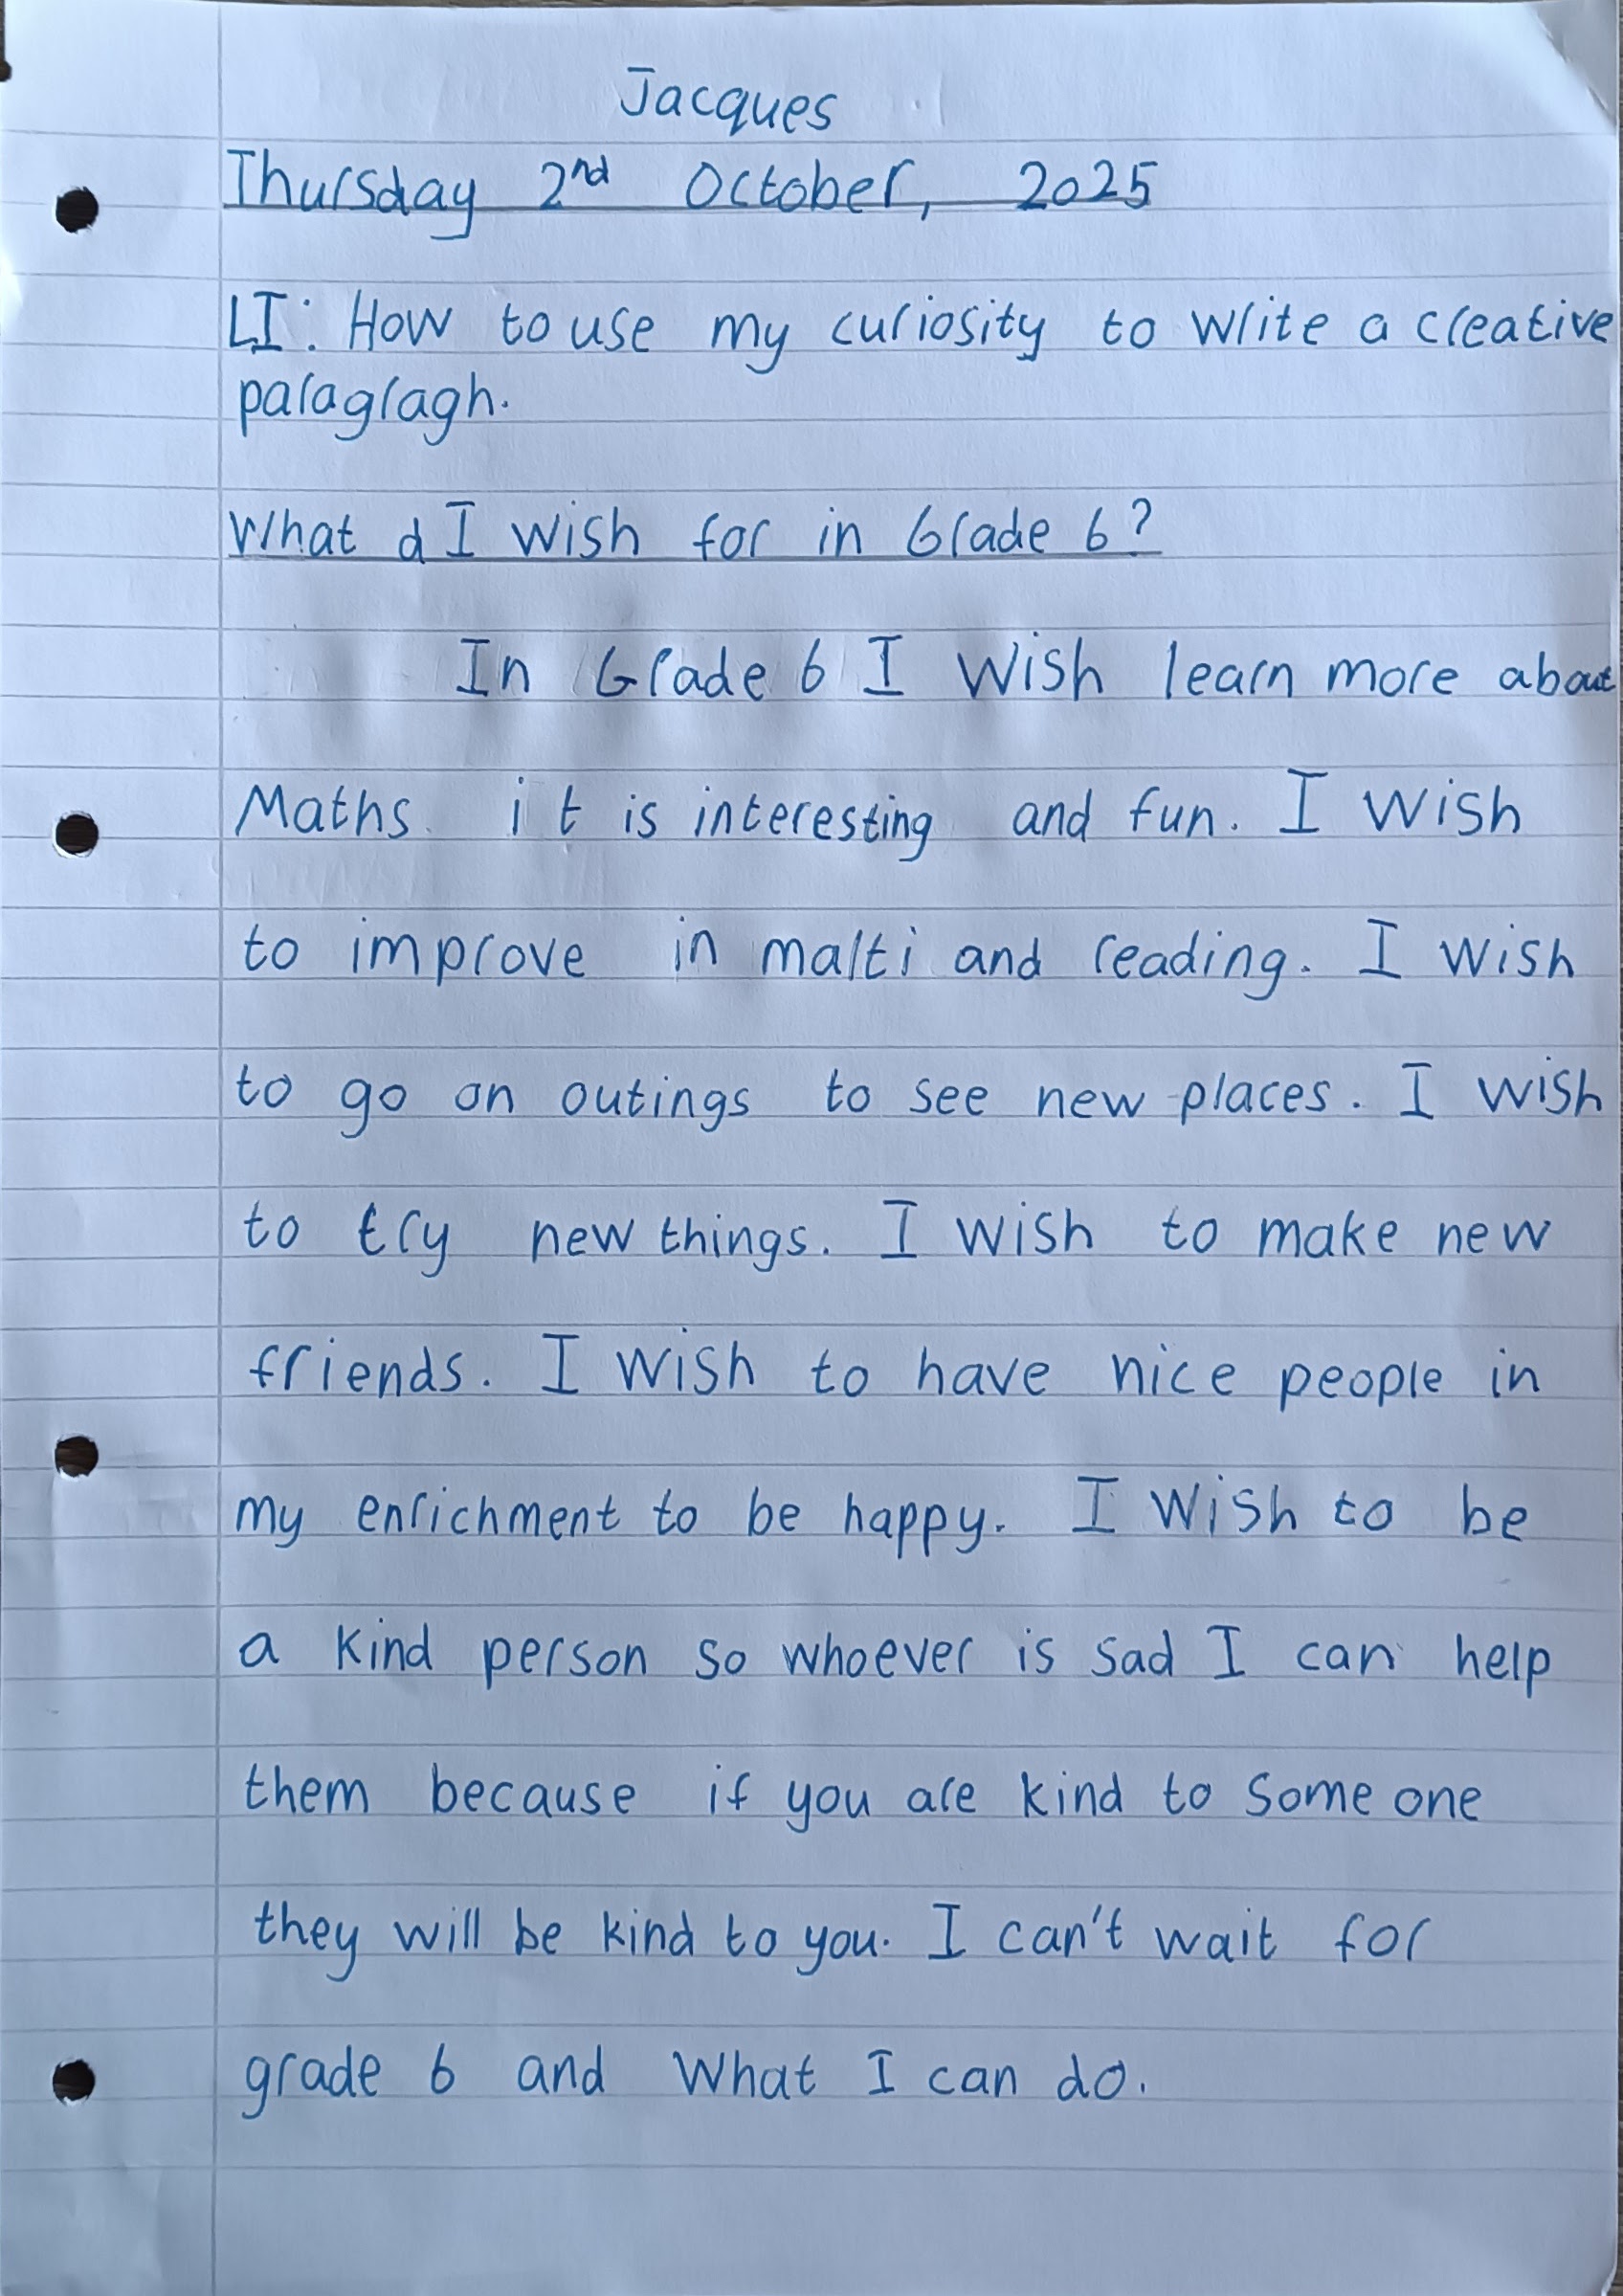 Jacques
Thursday 2nd October, 2025
LI: How to use my curiosity to write a creative
paragragh.
What d I wish for in Grade 6?
In Grade 6 I wish learn more about
Maths. it is interesting and fun. I wish
to improve in malti and reading. I wish
to go on outings to see new places. I wish
to try new things. I wish to make new
friends. I wish to have nice people in
my enrichment to be happy. I wish to be
a kind person so whoever is sad I can help
them because if you are kind to some one
they will be kind to you. I can't wait for
grade 6 and what I can do.